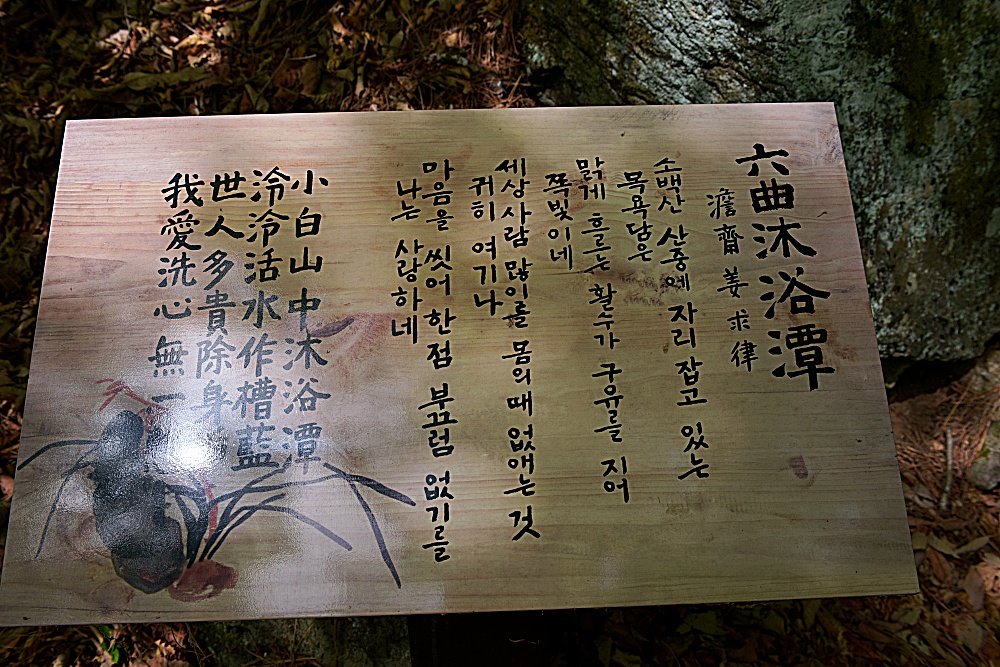 六曲沐浴潭
澹齋 姜求律
소백산 산중에 자리 잡고 있는
목욕담은
맑게 흐르는 활수가 구유를 지어
쪽빛이네
세상사람 많이를 몸의 때 없애는 것
귀히 여기나
마음을 씻어 한점 부끄럼 없기를
나는 사랑하네
小白山中沐浴潭
泠泠活水作槽藍
世人多貴除身
我愛洗心無一